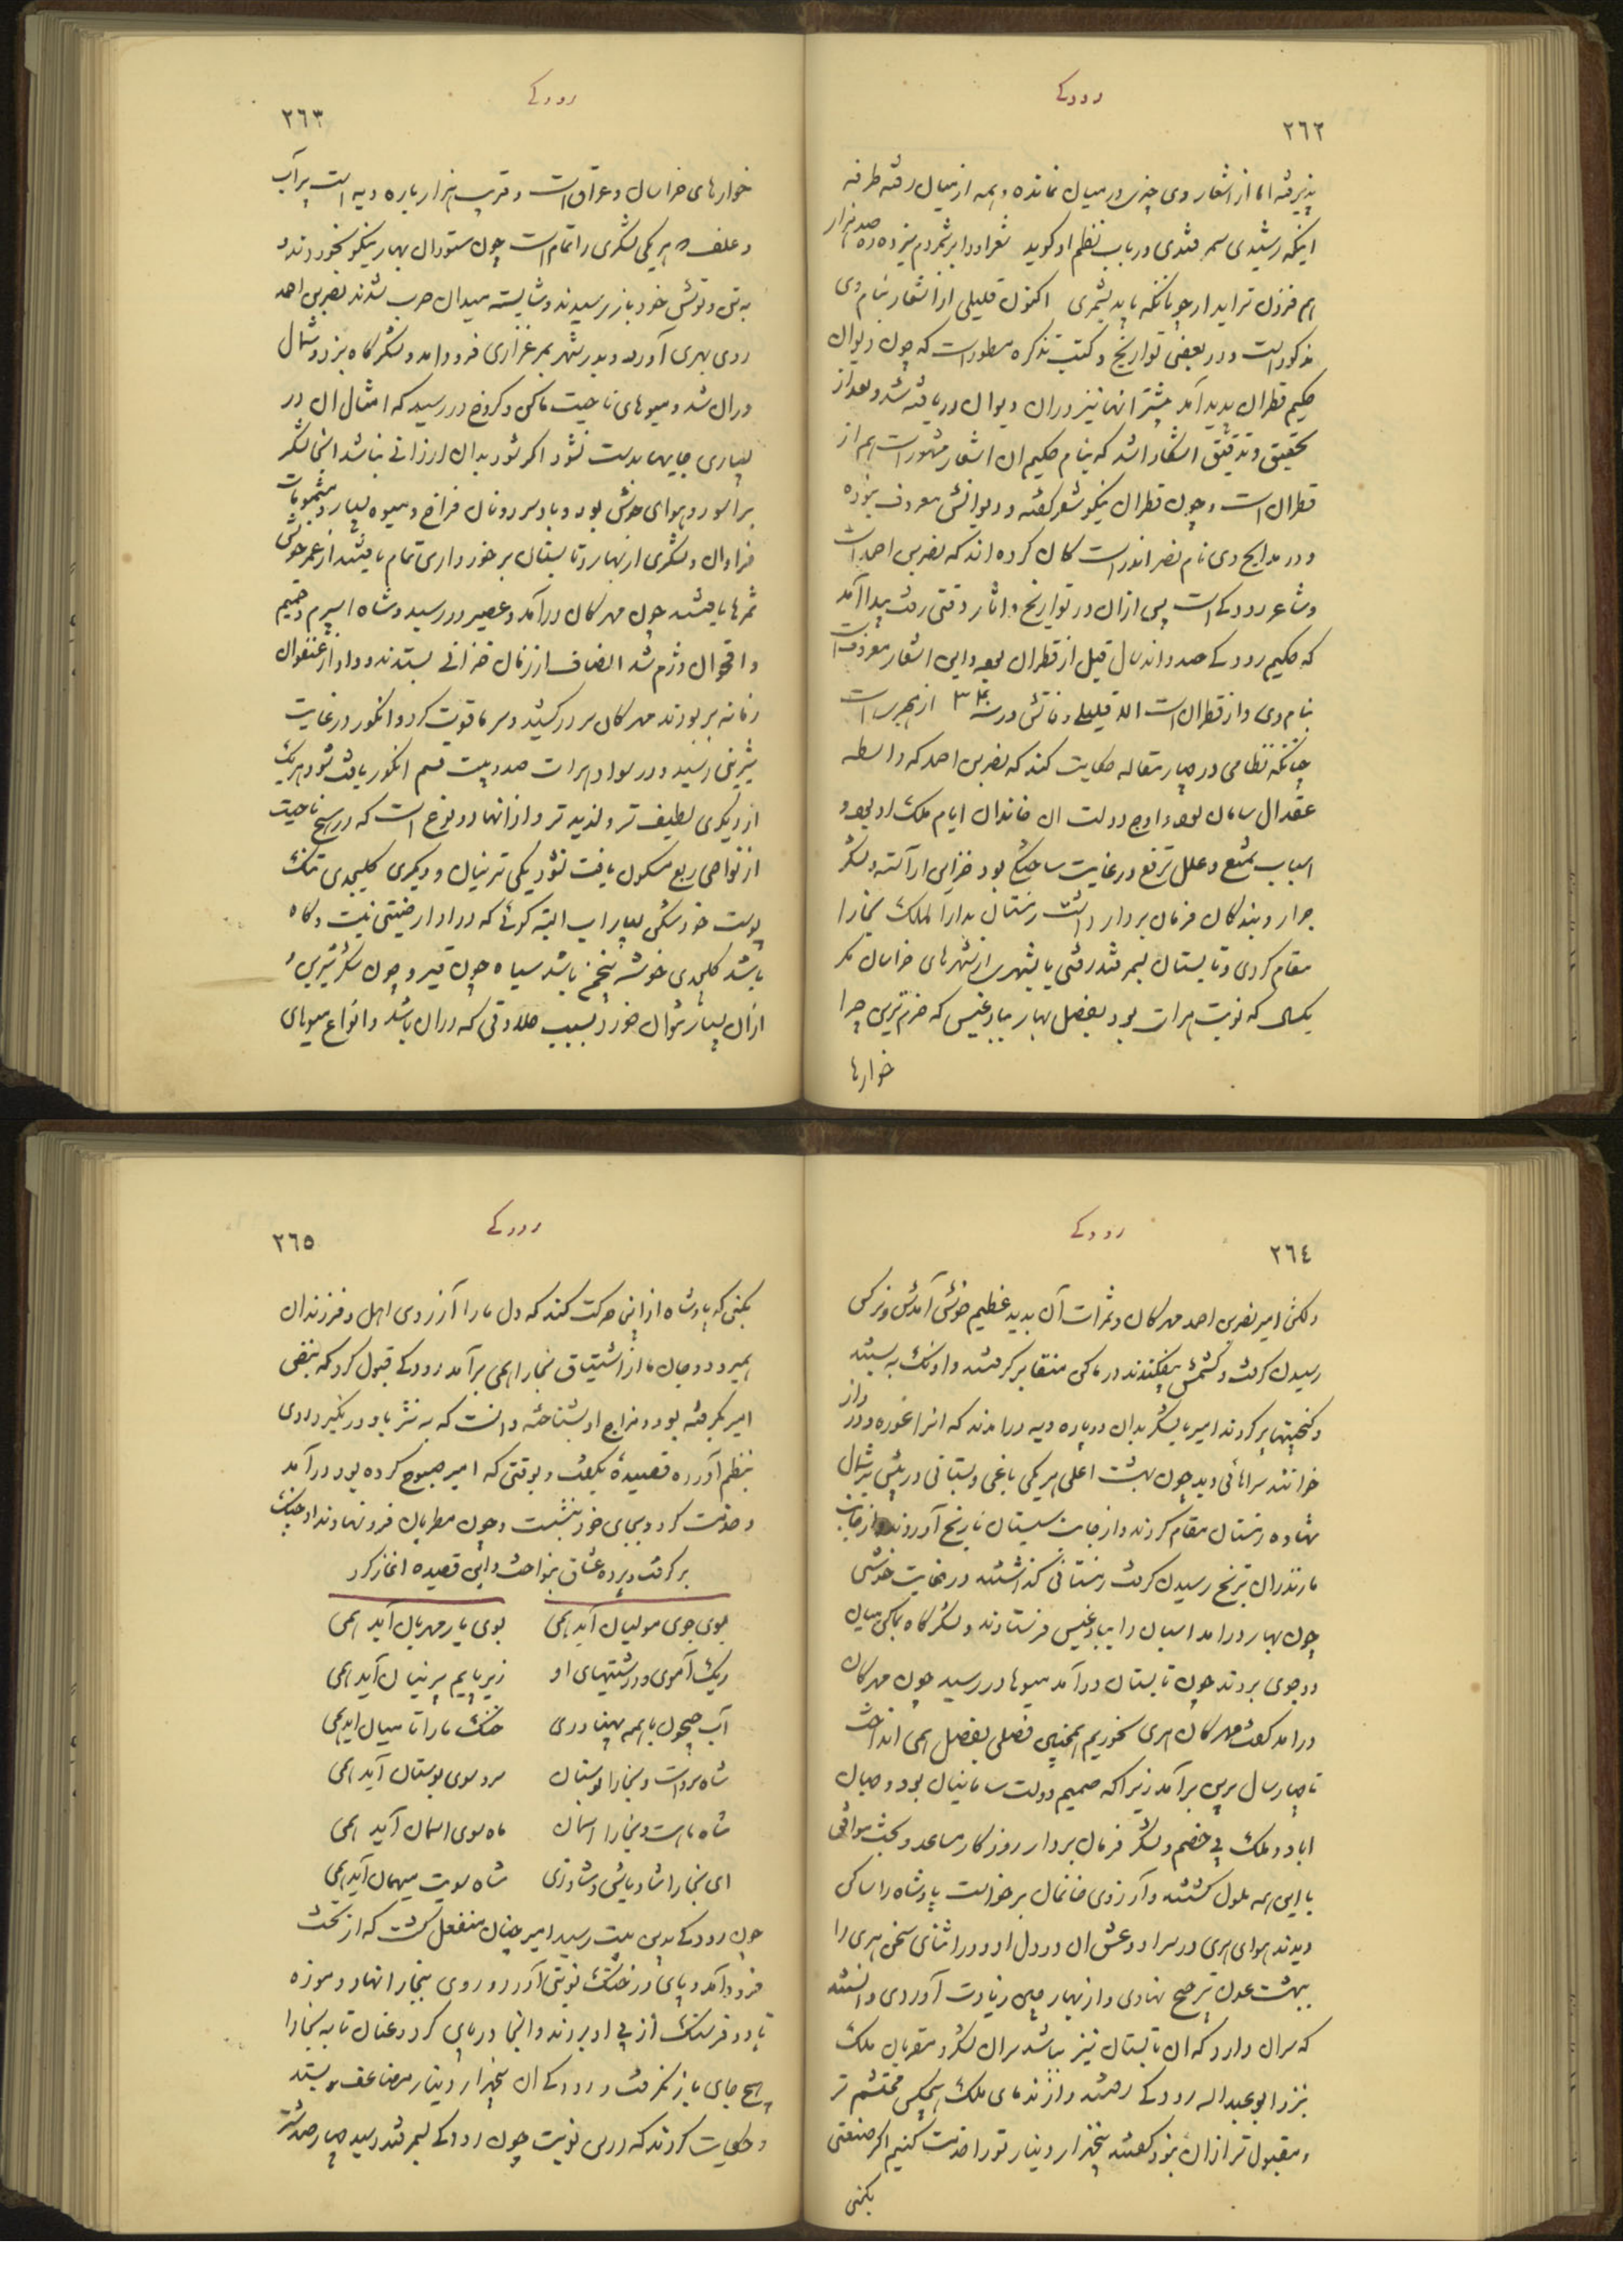 رودکے
٢٦٢
پذیرفته اما از اشعار وی چیزی در میان نمانده و همه از میان رفته طرفه
اینکه رشیدی سمرقندی در باب نظم او گوید شعر او را برشمردم سیزده ره صد هزار
هم فزون تر اید ار چونانکه باید بشمری اکنون قلیلی از اشعار بنام وی
مذکور است و در بعضی تواریخ و کتب تذکره مسطور است که چون دیوان
حکیم قطران پدید آمد بیشتر انها نیز در ان دیوان دریافته شد و بعد از
تحقیق و تدقیق اشکار اشد که بنام حکیم ان اشعار مشهور است هم از
قطران است و چون قطران نیکو شعر گفته و دیوانش معروف نبوده
و در مدایح وی نام نصر اندر است گمان کرده اند که نصر بن احمد است
و شاعر رودکے است پس از ان در تواریخ و اثار دقتی رفت پیدا آمد
که حکیم رودکے صد و اند سال قبل از قطران بوده و این اشعار معروفست
بنام وی و از قطران است الا قلیلی وفاتش در سنه از هجرست
چنانکه نظامی در چهار مقاله حکایت کند که نصر بن احمد که واسطه
عقد ال سامان بود و اوج دولت ان خاندان ایام ملک او بود و
اسباب تمتع و علل ترفع در غایت ساختگی بود خزاین آراسته و لشکر
جرار و بندگان فرمان بردار داشت زمستان بدار الملک بخارا
مقام کردی و تابستان بسمرقند رفتی یا بشهری از شهرهای خراسان مگر
یکسال که نوبت هرات بود بفصل بهار ببادغیس که خرم ترین چرا
خوارها
رودکے
٢٦٣
خوارهای خراسان و عراق است و قریب هزار پاره دیه است پر آب
و علف که هر یکی لشکری را تمام است چون ستوران بهار نیکو بخوردند و
به تن و توش خود باز رسیدند و شایسته میدان حرب شدند نصر بن احمد
روی بهری آورد و بدر شهر بمرغزاری فرود امد و لشکرگاه بزد و شمال
وران شد و میوهای ناحیت مالکی و کروخ در رسید که امثال ان در
بسیاری جایها بدست نشود اگر شود بدان ارزانے نباشد انجا لشکر
براسود و هوای خوش بود و باد سرد و نان فراخ و میوه بسیار و مشمومات
فراوان و لشکری از بهار و تابستان برخورداری تمام یافتند از عمر خویش
ثمرها یافتند چون مهرگان درآمد و عصیر در رسید و شاه اسپرم و حمیم
و اقحوان وژم شد انصاف از زمان خزانے بستدند و داد از عنفوان
زمانه بر بودند مهرگان سر در کشید و سرما قوت کرد و انگور در غایت
شیرینی رسید و در سواد هرات صد و بیست قسم انگور یافت شود هر یک
از دیگری لطیف تر و لذیذ تر و از انها دو نوع است که در هیچ ناحیت
از نواحی ربع مسکون یافت نشود یکی ترنیان و دیگری کلیجدی تنگ
پوست خورد تکس بسیار اب البته گوئے که در او ارضیتی نیست و گاه
باشد کلیجدی خوشه پنجمن باشد سیاه چون قیر و چون شکر شیرین و
ازان بسیار توان خورد بسبب حلاوتی که در ان باشد و انواع میوهای
رودکے
٢٦٤
دلکش امیر نصر بن احمد مهرکان و ثمرات آن بدید عظیم خوش آمدش و نرگس
رسیدن گرفت و کشمش بیفکندند در مالکی منقا بر گرفتند و اونگ به بستند
و گنجینها پر کردند امیر با لشکر بدان دو پاره دیه درامدند که انرا غوره و درواز
خوانند سرائائی دید چون بهشت اعلی هر یکی باغی و بستانی در پیش بر شمال
نهاده زمستان مقام کردند و از جانب سیستان نارنج آوردند و از جانب
مازندران ترنج رسیدن گرفت زمستانی گذاشتند در نهایت خوشی
چون بهار درامد اسبان را ببادغیس فرستادند و لشکرگاه بمالکی میان
دو جوی بردند چون تابستان درآمد میوها در رسید چون مهرگان
درامد گفت مهرگان هری بخوریم همچنین فصلی بفصل همی انداخت
تا چهار سال برین برآمد زیرا که صمیم دولت سامانیان بود و جهان
اباد و ملک بی خصم و لشکر فرمان بردار روزگار مساعد و بخت موافق
با این همه ملول گشتند و آرزوی خانمان برخواست پادشاه را ساکن
دیدند هوای هری در سر او و عشق ان در دل او و در اثنای سخن هری را
ببهشت عدن ترجیح نهادی و از بهار چین زیادت آوردی دانستند
که سران دارد که ان تابستان نیز بباشد سران لشکر و مقربان ملک
نزد ابو عبد اله رودکے رفتند و از ندمای ملک هیچکس محتشم تر
و مقبول تر از ان نبود گفتند پنجهزار دینار تو را خدمت کنیم اگر صنعتی
بکنی
رودکے
٢٦٥
بکنی که پادشاه از این حرکت کند که دل ما را آرزوی اهل و فرزندان
همیرود و جان ما از اشتیاق بخارا همی برآمد رودکے قبول کرد که نبض
امیر بگرفته بود و مزاج او بشناخته دانست که به نثر با او در نگیرد روی
بنظم آورده قصیدهٔ بگفت و بوقتی که امیر صبوح کرده بود درآمد
و خدمت کرد و بجای خود بنشست و چون مطربان فرو نهادند او چنگ
بر گرفت و پرده عشاق بنواخت و این قصیده اغاز کرد
بوی جوی مولیان آید همی بوی یار مهربان آید همی
ریگ آموی و درشتیهای او زیر پایم پرنیان آید همی
آب جیحون با همه پهناوری خنگ ما را تا میان اید همی
شاه سرو است و بخارا بوستان سرو سوی بوستان آید همی
شاه ماه است و بخارا اسمان ماه سوی اسمان آید همی
ای بخارا شاد باش و شاد زی شاه سویت میهمان آید همی
چون رودکے بدین بیت رسید امیر چنان منفعل گشت که از تخت
فرود آمد و پای در خنگ نوبتی آورد و روی ببخارا نهاد و موزه
تا دو فرسنگ از پی او بردند و انجا در پای کرد و عنان تا به بخارا
هیچ جای باز نگرفت و رودکے ان پنجهزار دینار مضاعف بستد
و حکایت کردند که درین نوبت چون رودکے بسمرقند رسید چهار صد شتر